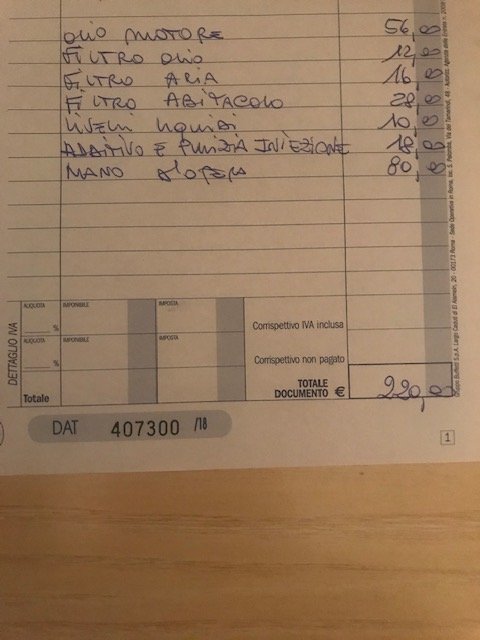 OLIO MOTORE 56,00
FILTRO OLIO 12,00
FILTRO ARIA 16,00
FILTRO ABITACOLO 28,00
LIVELLI LIQUIDI 10,00
ADDITIVO E PULIZIA INIEZIONE 18,00
MANO D'OPERA 80,00
DETTAGLIO IVA
ALIQUOTA IMPONIBILE IMPOSTA
%
Corrispettivo IVA inclusa
ALIQUOTA IMPONIBILE IMPOSTA
%
Corrispettivo non pagato
Totale
TOTALE
DOCUMENTO € 220,00
DAT 407300 /18
1
Gruppo Buffetti S.p.A. Largo Caduti di El Alamein, 20 - 00173 Roma - Sede Operativa in Roma